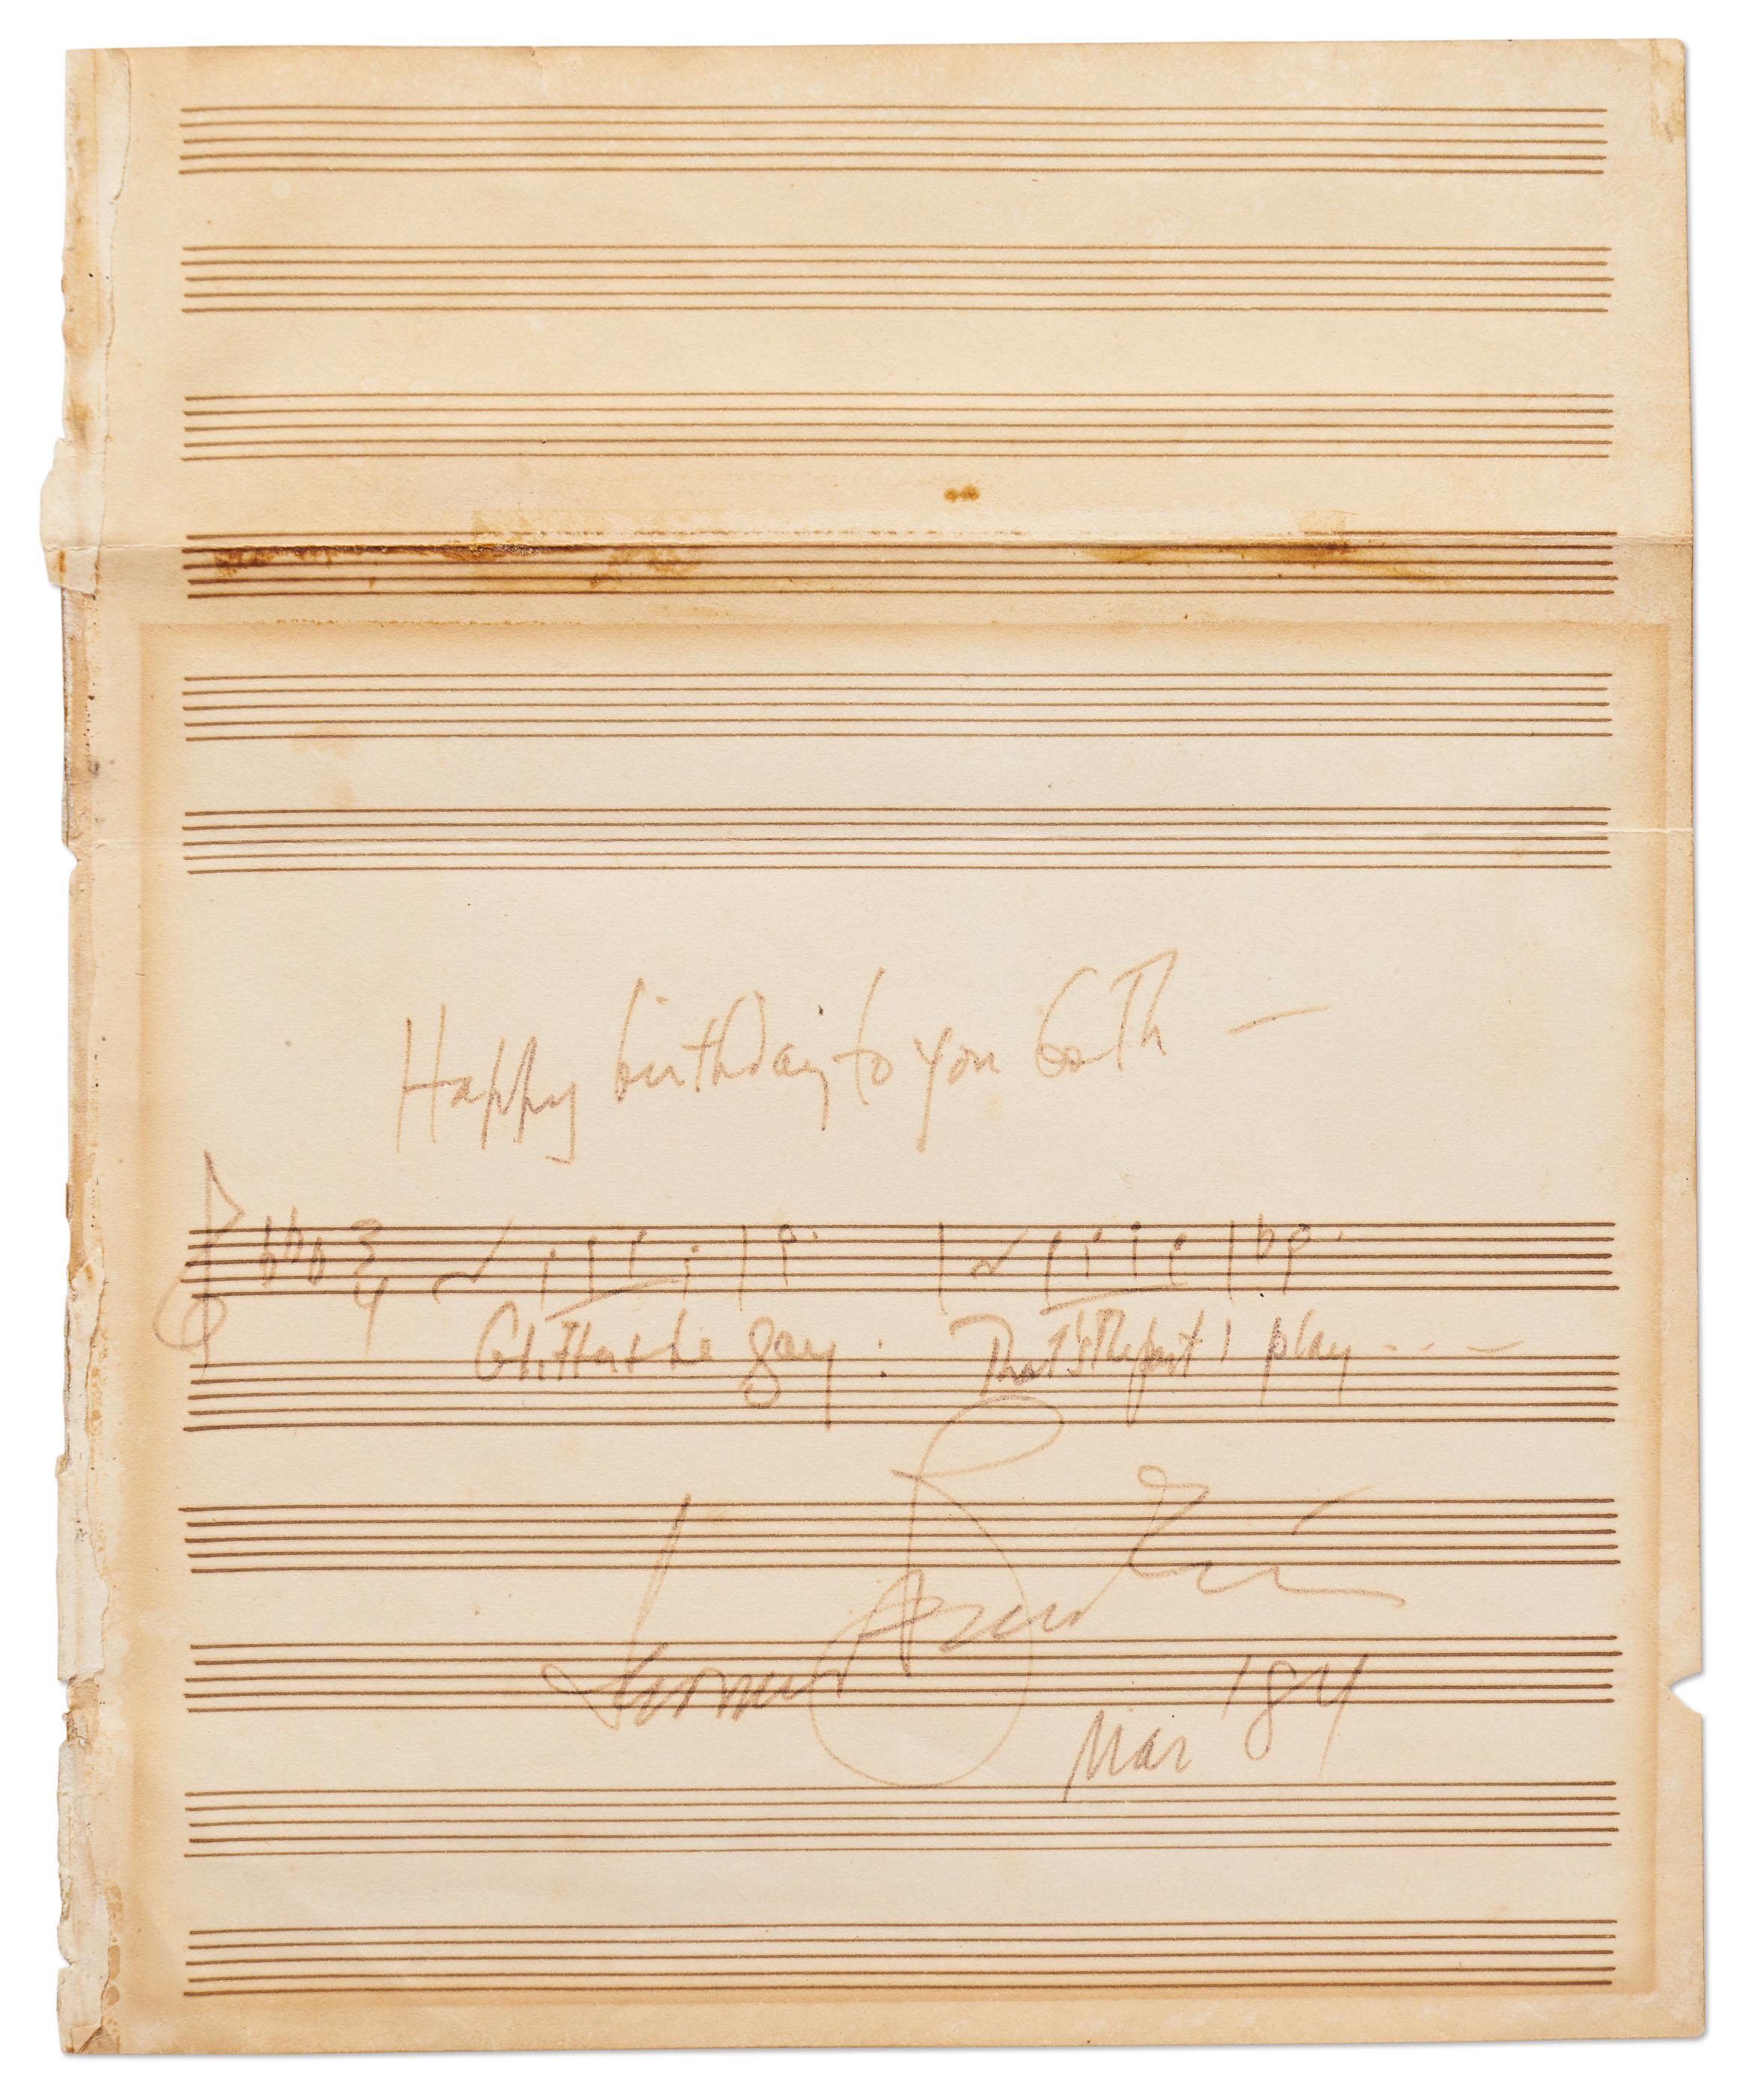 Happy birthday to you both —
3
4
Glitter & be gay : That's the part I play - - -
Leonard Bernstein
Mar '84